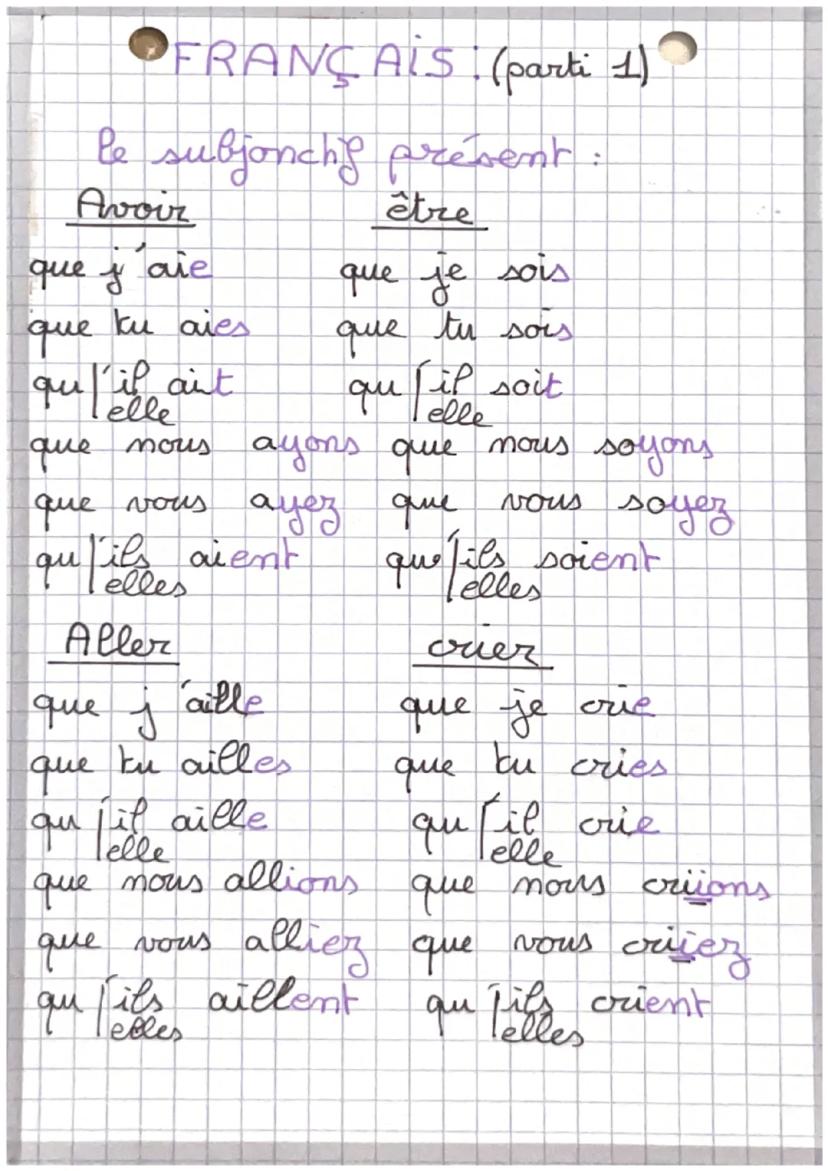 FRANÇAIS : (parti 1)
le subjonctif présent :
Avoir être
que j'aie que je sois
que tu aies que tu sois
qu'il ait qu'il soit
elle elle
que nous ayons que nous soyons
que vous ayez que vous soyez
qu'ils aient qu'ils soient
elles elles
Aller crier
que j'aille que je crie
que tu ailles que tu cries
qu'il aille qu'il crie
elle elle
que nous allions que nous criions
que vous alliez que vous criiez
qu'ils aillent qu'ils crient
elles elles